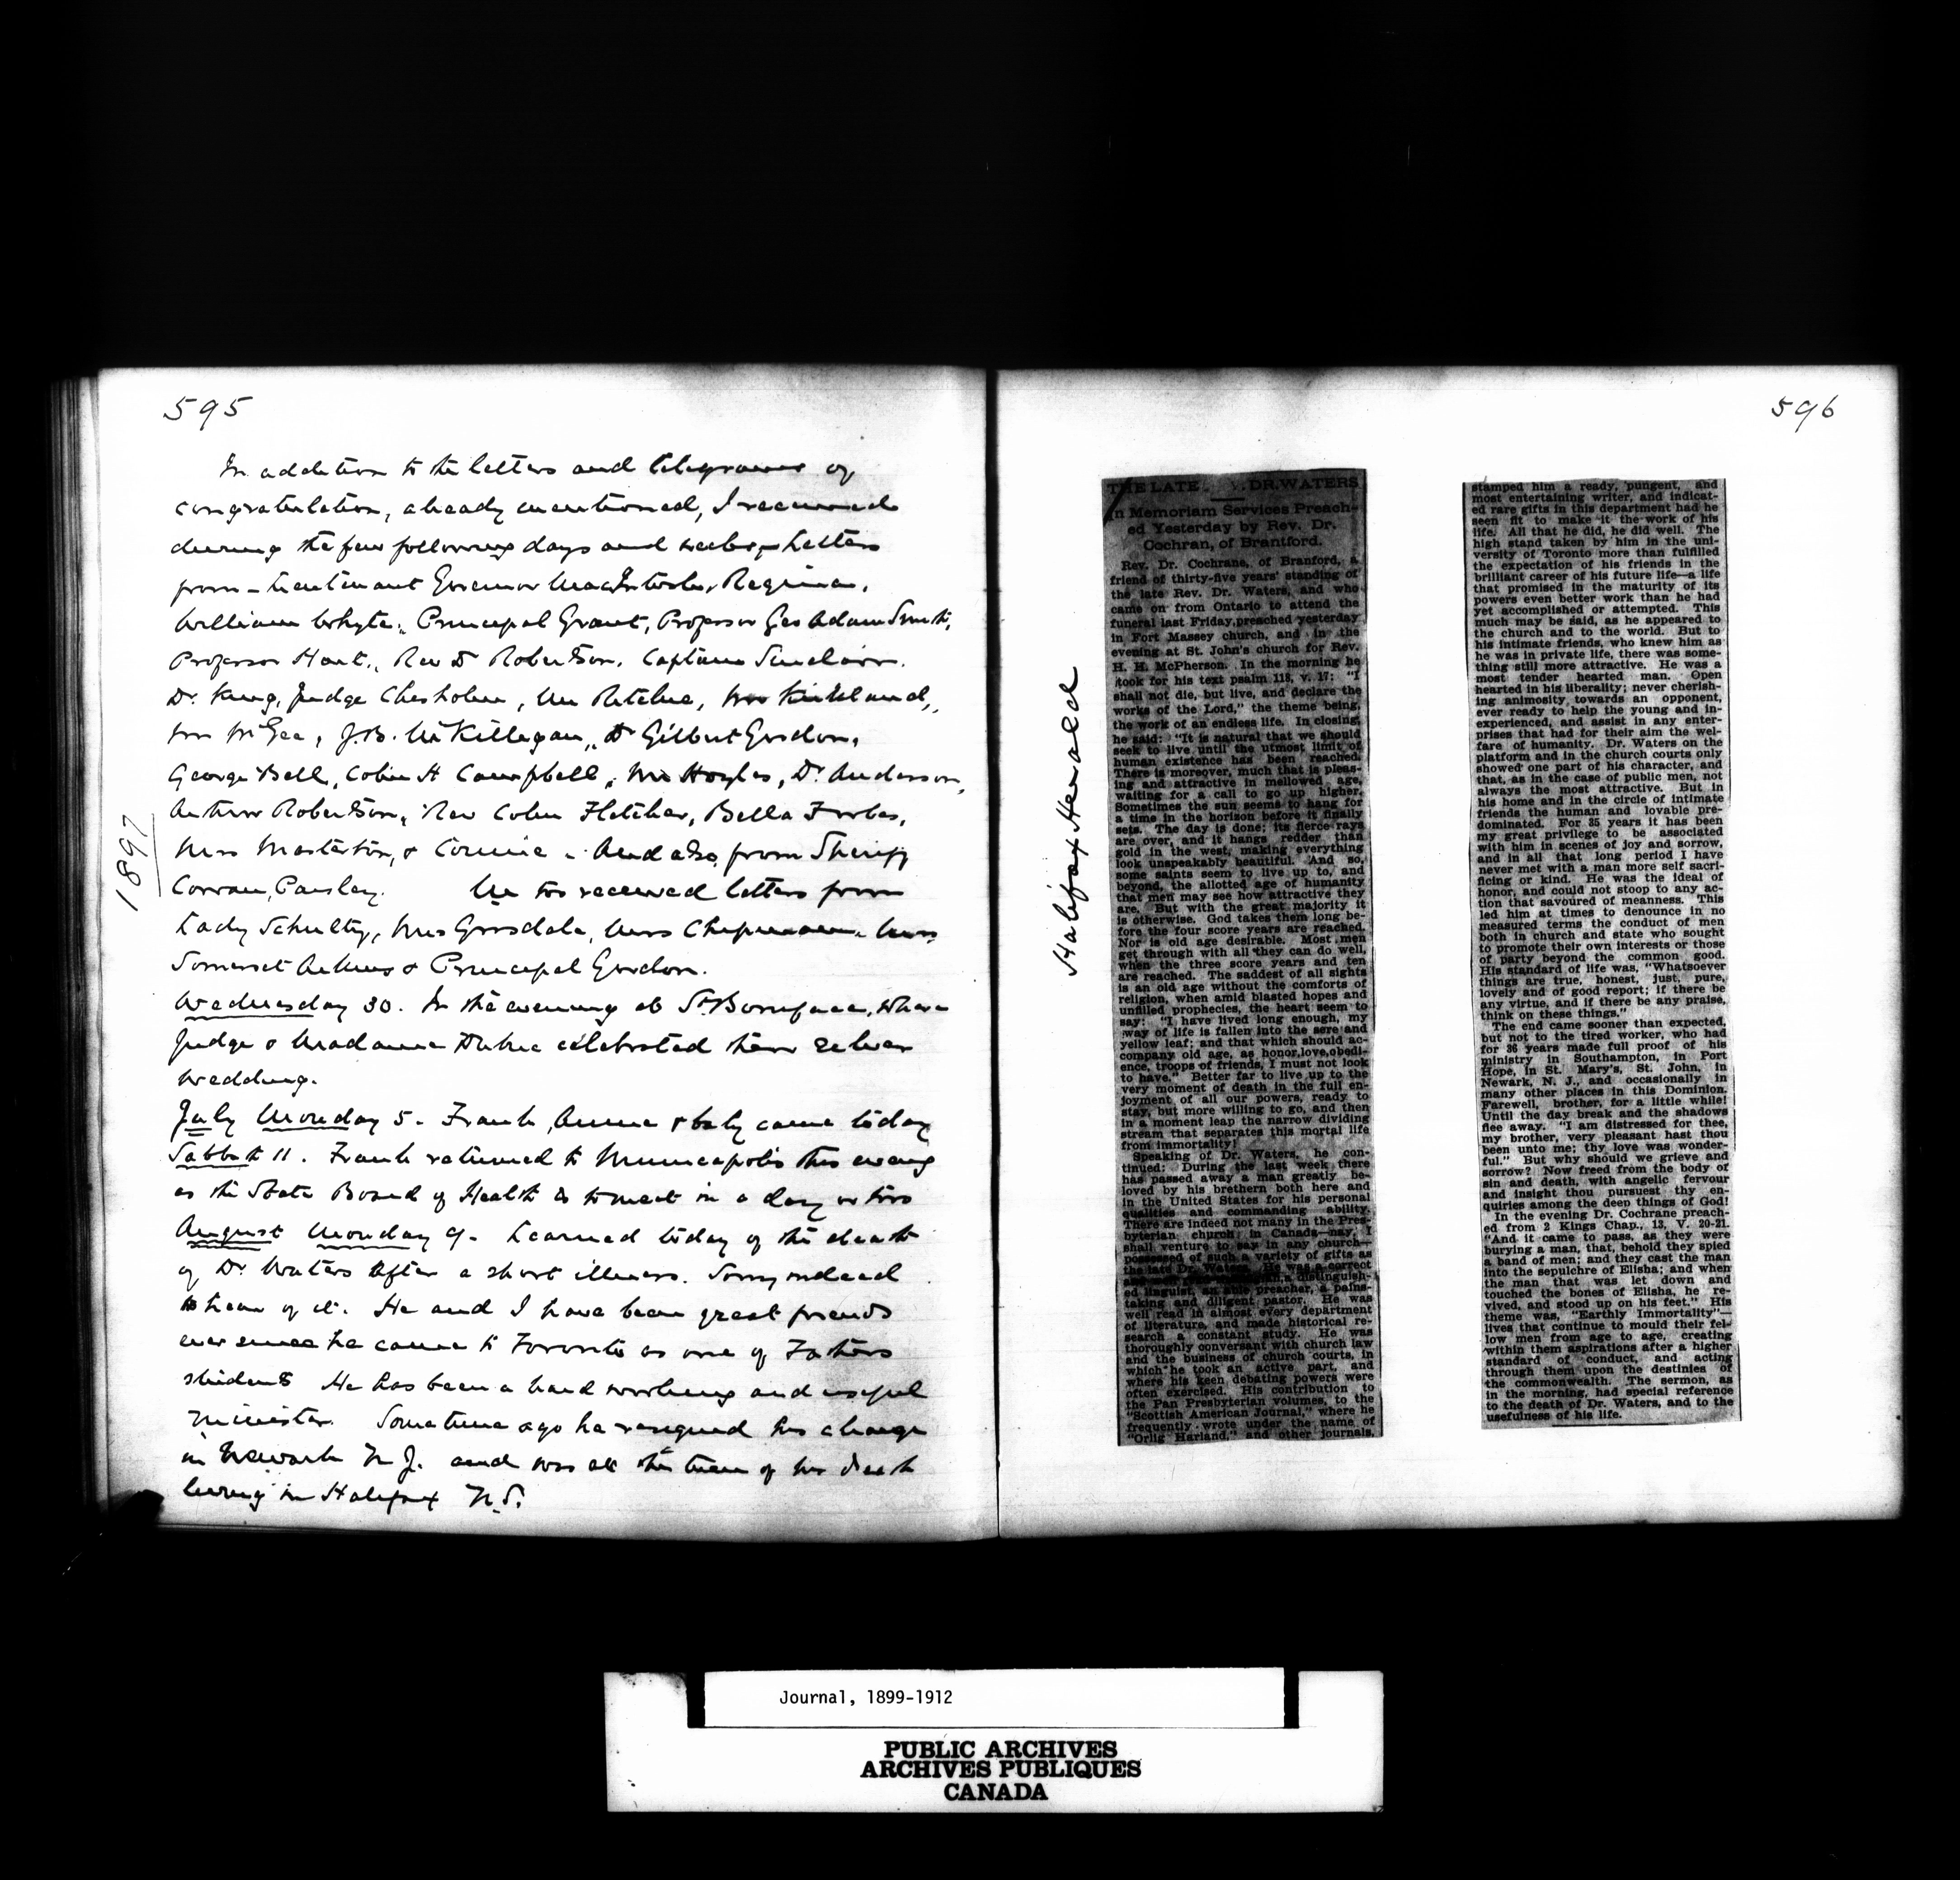 595
In addition to the letters and telegrams of
congratulation, already mentioned, I received
during the few following days and weeks, letters
from - Lieutenant Governor MacIntosh, Regina,
William Whyte, Principal Grant, Professor Geo Adam Smith,
Professor Hart, Rev Dr Robertson, Captain Sinclair.
Dr. King, Judge Chisholm, Mr Ritchie, Kirkland,
McGee, J.B. McKilligan, Dr Gilbert Gordon,
George Bell, Colin H Campbell, Mr Hoyles, Dr. Anderson,
Arthur Robertson, Rev Colin Fletcher, Bella Forbes,
Miss Masterton, & Connie - And also from Sheriff
Paisley. We too received letters from
Lady Schultz, Mrs Grisdale, Miss Chapman,
Somerset & Principal Gordon.
Wednesday 30. In the evening at St. Boniface, where
Judge & Madame Dubuc celebrated their silver
wedding.
July Monday 5. Frank, Annie & baby came today
Sabbath 11. Frank returned to Minneapolis this evening
as the State Board of Health is to meet in a day or two
August Monday 9. Learned today of the death
of Dr Waters after a short illness. Sorry indeed
to hear of it. He and I have been great friends
ever since he came to Toronto as one of Fathers
students He has been a hard working and useful
minister. Sometime ago he resigned his charge
in Newark N.J. and was at the time of his death
living in Halifax N.S.
1897
596
Halifax Herald
THE LATE V. DR. WATERS
In Memoriam Services Preach-
ed Yesterday by Rev. Dr.
Cochran, of Brantford.
Rev. Dr. Cochrane, of Branford, a
friend of thirty-five years' standing of
the late Rev. Dr. Waters, and who
came on from Ontario to attend the
funeral last Friday, preached yesterday
in Fort Massey church, and in the
evening at St. John's church for Rev.
H. H. McPherson. In the morning he
took for his text psalm 118, v. 17: "I
shall not die, but live, and declare the
works of the Lord," the theme being,
the work of an endless life. In closing,
he said: "It is natural that we should
seek to live until the utmost limit of
human existence has been reached.
There is moreover, much that is pleas-
ing and attractive in mellowed age,
waiting for a call to go up higher.
Sometimes the sun seems to hang for
a time in the horizon before it finally
sets. The day is done; its fierce rays
are over, and it hangs redder than
gold in the west, making everything
look unspeakably beautiful. And so,
some saints seem to live up to, and
beyond, the allotted age of humanity
that men may see how attractive they
are. But with the great majority it
is otherwise. God takes them long be-
fore the four score years are reached.
Nor is old age desirable. Most men
get through with all they can do well,
when the three score years and ten
are reached. The saddest of all sights
is an old age without the comforts of
religion, when amid blasted hopes and
unfilled prophecies, the heart seem to
say: "I have lived long enough, my
way of life is fallen into the sere and
yellow leaf; and that which should ac-
company old age, as honor, love, obedi-
ence, troops of friends, I must not look
to have." Better far to live up to the
very moment of death in the full en-
joyment of all our powers, ready to
stay, but more willing to go, and then
in a moment leap the narrow dividing
stream that separates this mortal life
from immortality!
Speaking of Dr. Waters, he con-
tinued: During the last week there
has passed away a man greatly be-
loved by his brethern both here and
in the United States for his personal
qualities and commanding ability.
There are indeed not many in the Pres-
byterian church in Canada—nay, I
shall venture to say in any church—
possessed of such a variety of gifts as
the late Dr. Waters. He was a correct
a distinguish-
ed linguist, an able preacher, a pains-
taking and diligent pastor. He was
well read in almost every department
of literature, and made historical re-
search a constant study. He was
thoroughly conversant with church law
and the business of church courts, in
which he took an active part, and
where his keen debating powers were
often exercised. His contribution to
the Pan Presbyterian volumes, to the
"Scottish American Journal," where he
frequently wrote under the name of
"Orlig Harland," and other journals,
stamped him a ready, pungent, and
most entertaining writer, and indicat-
ed rare gifts in this department had he
seen fit to make it the work of his
life. All that he did, he did well. The
high stand taken by him in the uni-
versity of Toronto more than fulfilled
the expectation of his friends in the
brilliant career of his future life—a life
that promised in the maturity of its
powers even better work than he had
yet accomplished or attempted. This
much may be said, as he appeared to
the church and to the world. But to
his intimate friends, who knew him as
he was in private life, there was some-
thing still more attractive. He was a
most tender hearted man. Open
hearted in his liberality; never cherish-
ing animosity towards an opponent,
ever ready to help the young and in-
experienced, and assist in any enter-
prises that had for their aim the wel-
fare of humanity. Dr. Waters on the
platform and in the church courts only
showed one part of his character, and
that, as in the case of public men, not
always the most attractive. But in
his home and in the circle of intimate
friends the human and lovable pre-
dominated. For 35 years it has been
my great privilege to be associated
with him in scenes of joy and sorrow,
and in all that long period I have
never met with a man more self sacri-
ficing or kind. He was the ideal of
honor, and could not stoop to any ac-
tion that savoured of meanness. This
led him at times to denounce in no
measured terms the conduct of men
both in church and state who sought
to promote their own interests or those
of party beyond the common good.
His standard of life was, "Whatsoever
things are true, honest, just, pure,
lovely and of good report; if there be
any virtue, and if there be any praise,
think on these things."
The end came sooner than expected,
but not to the tired worker, who had
for 36 years made full proof of his
ministry in Southampton, in Port
Hope, in St. Mary's, St. John, in
Newark, N. J., and occasionally in
many other places in this Dominion.
Farewell, brother, for a little while!
Until the day break and the shadows
flee away. "I am distressed for thee,
my brother, very pleasant hast thou
been unto me; thy love was wonder-
ful." But why should we grieve and
sorrow? Now freed from the body of
sin and death, with angelic fervour
and insight thou pursuest thy en-
quiries among the deep things of God!
In the evening Dr. Cochrane preach-
ed from 2 Kings Chap., 13, V. 20-21.
"And it came to pass, as they were
burying a man, that, behold they spied
a band of men; and they cast the man
into the sepulchre of Elisha; and when
the man that was let down and
touched the bones of Elisha, he re-
vived, and stood up on his feet." His
theme was, "Earthly Immortality"—
lives that continue to mould their fel-
low men from age to age, creating
within them aspirations after a higher
standard of conduct, and acting
through them upon the destinies of
the commonwealth. The sermon, as
in the morning, had special reference
to the death of Dr. Waters, and to the
usefulness of his life.
Journal, 1899-1912
PUBLIC ARCHIVES
ARCHIVES PUBLIQUES
CANADA